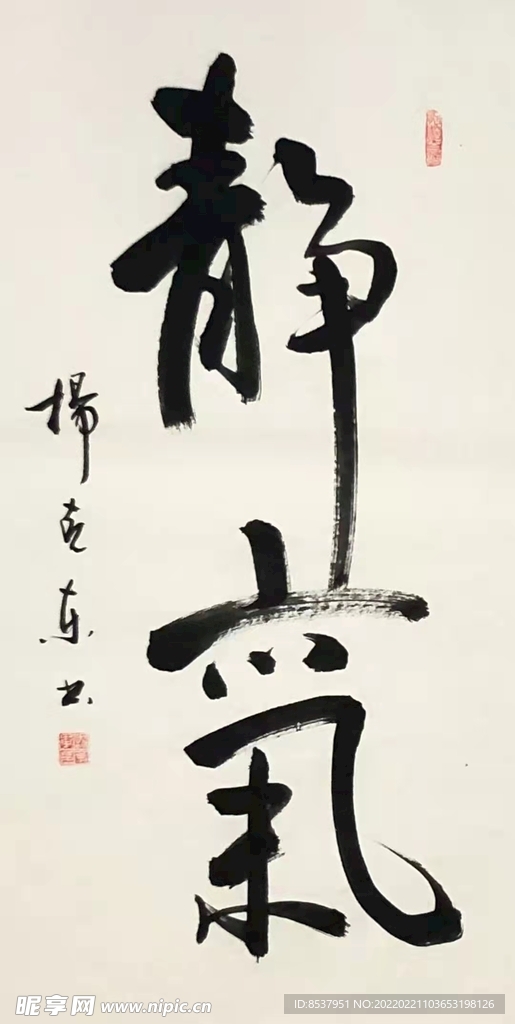 静氣
楊克东书
昵享网 www.nipic.cn
ID:8537951 NO:20220221103653198126